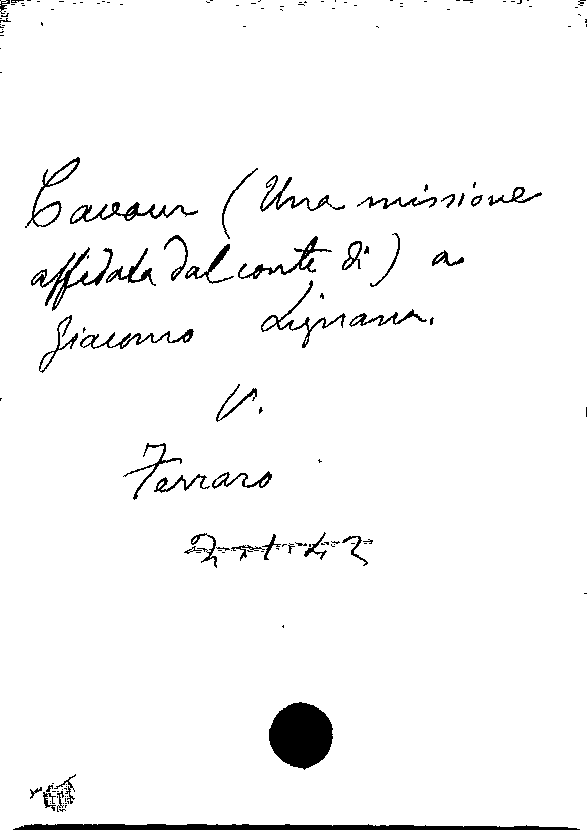 Cavour (Una missione
affidata dal conte di) a
Giacomo Lignana.
V.
Ferraro